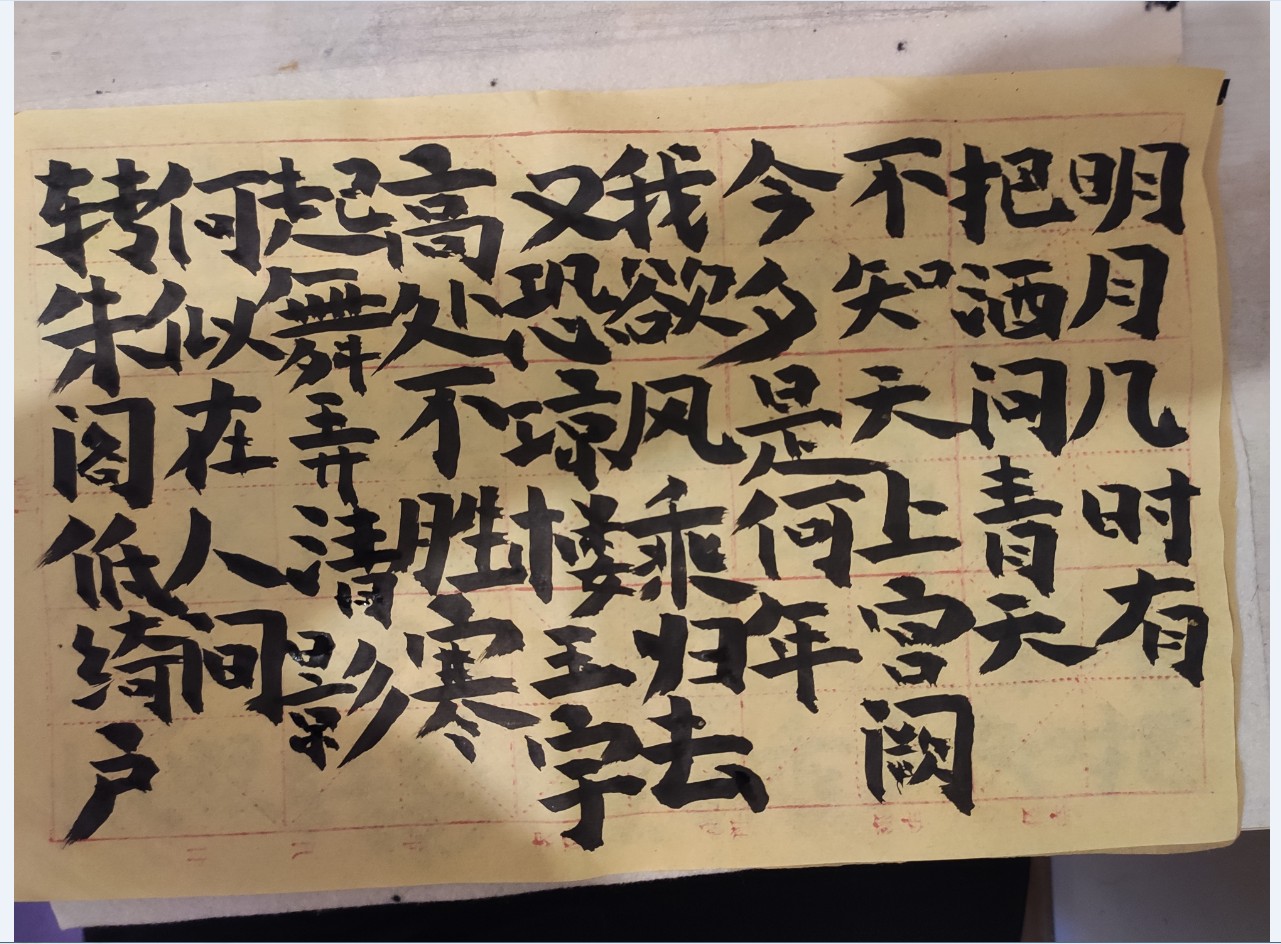 明月几时有
把酒问青天
不知天上宫阙
今夕是何年
我欲风乘归去
又恐琼楼玉宇
高处不胜寒
起舞弄清影
何似在人间
转朱阁低绮户